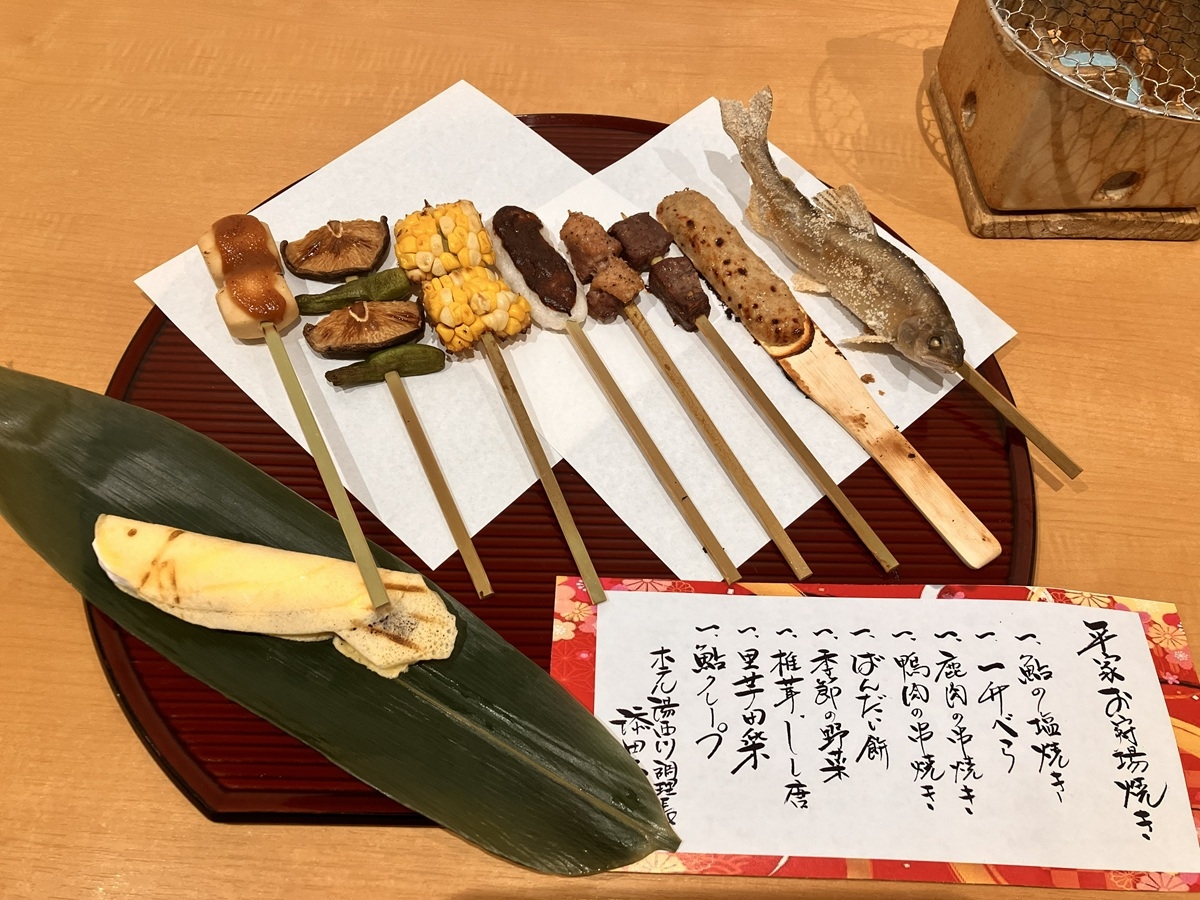 平家お狩場焼き
一、鮎の塩焼き
一、一升べら
一、鹿肉の串焼き
一、鴨肉の串焼き
一、ばんだい餅
一、季節の野菜
一、椎茸・しし唐
一、里芋田楽
一、鮎クレープ
ホテル湯西川調理長
添田